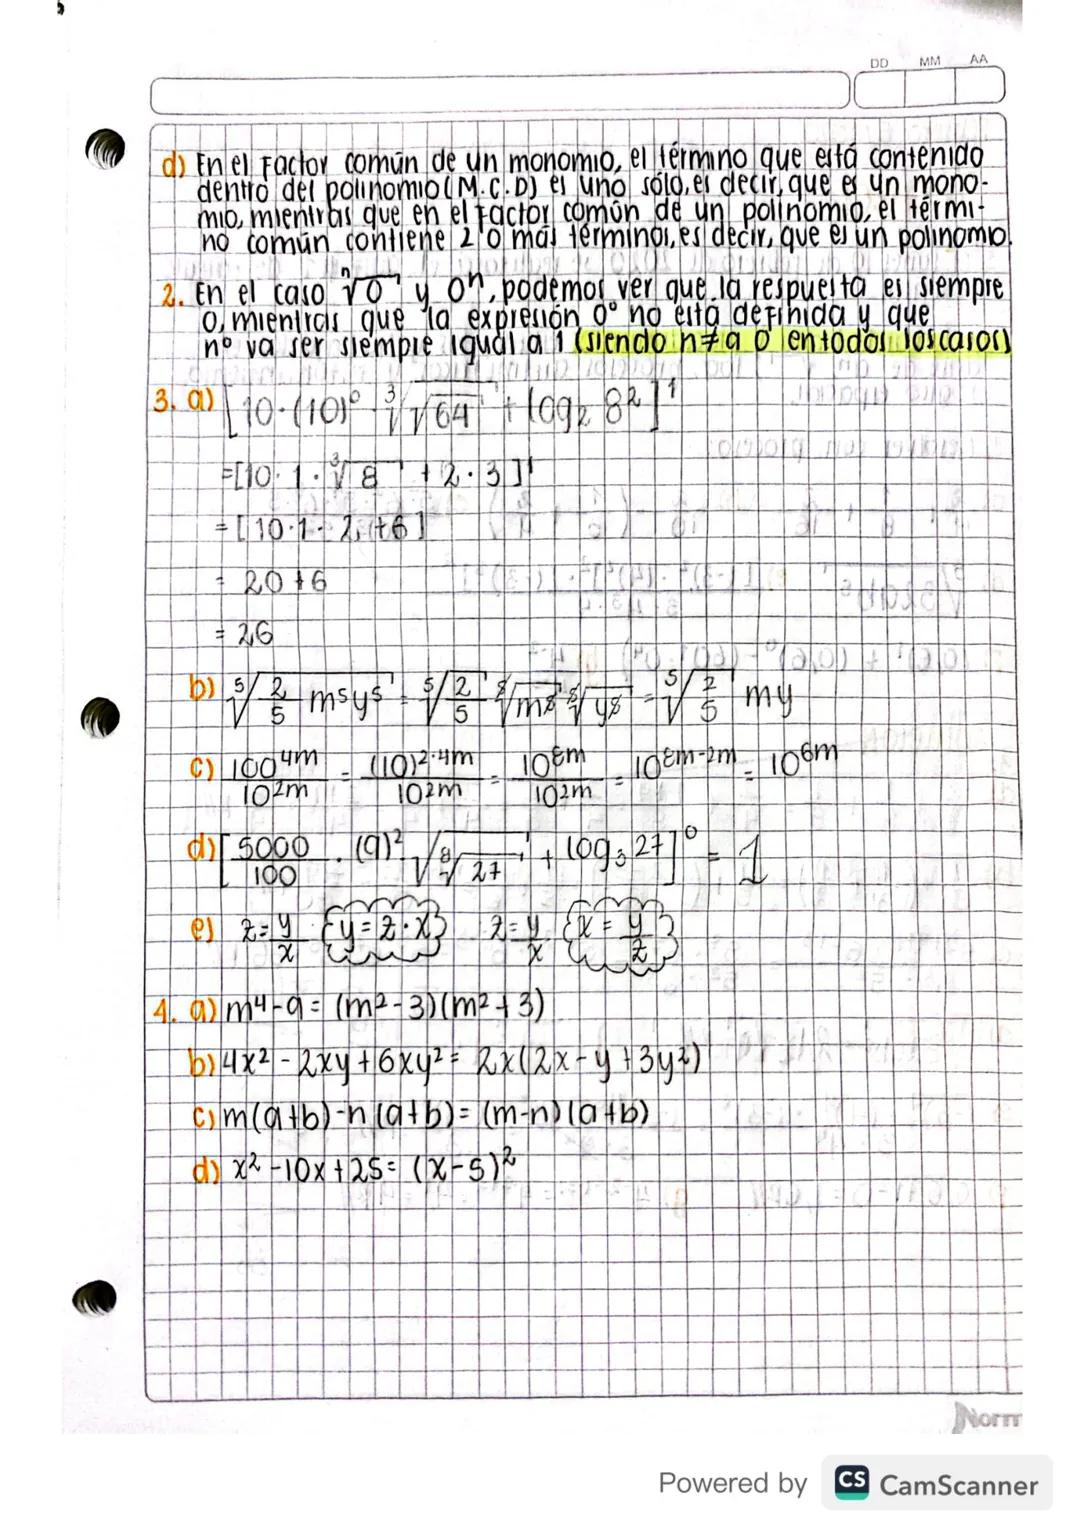 DD MM AA
d) En el Factor común de un monomio, el término que está contenido
dentro del polinomio (M.C.D) es uno sólo, es decir, que es un mono-
mio, mientras que en el factor común de un polinomio, el térmi-
no común contiene 2 o más términos, es decir, que es un polinomio.
2. En el caso ⁿ√0 y 0ⁿ, podemos ver que la respuesta es siempre
0, mientras que la expresión 0⁰ no está definida y que
n⁰ va ser siempre igual a 1 (siendo n≠a 0 en todos los casos)
3. a) [10·(10)⁰ · ³√√64 + log₂ 8²]¹
=[10·1·³√8 + 2·3]¹
=[10·1·2+6]
= 20+6
= 26
b) ⁵√(2/5 m⁵y⁵) = ⁵√(2/5) ⁵√m⁵ ⁵√y⁵ = ⁵√(2/5) my
c) 100⁴ᵐ/10²ᵐ = (10)²·⁴ᵐ/10²ᵐ = 10⁸ᵐ/10²ᵐ = 10⁸ᵐ⁻²ᵐ = 10⁶ᵐ
d) [5000/100 · (9)² √⁸√27 + log₃ 27]⁰ = 1
e) z=y/x {y=z·x} z=y/x {x=y/z}
4. a) m⁴-9= (m²-3)(m²+3)
b) 4x²-2xy+6xy²= 2x(2x-y+3y²)
c) m(a+b)-n(a+b)= (m-n)(a+b)
d) x²-10x+25= (x-5)²
Norm
Powered by CS CamScanner